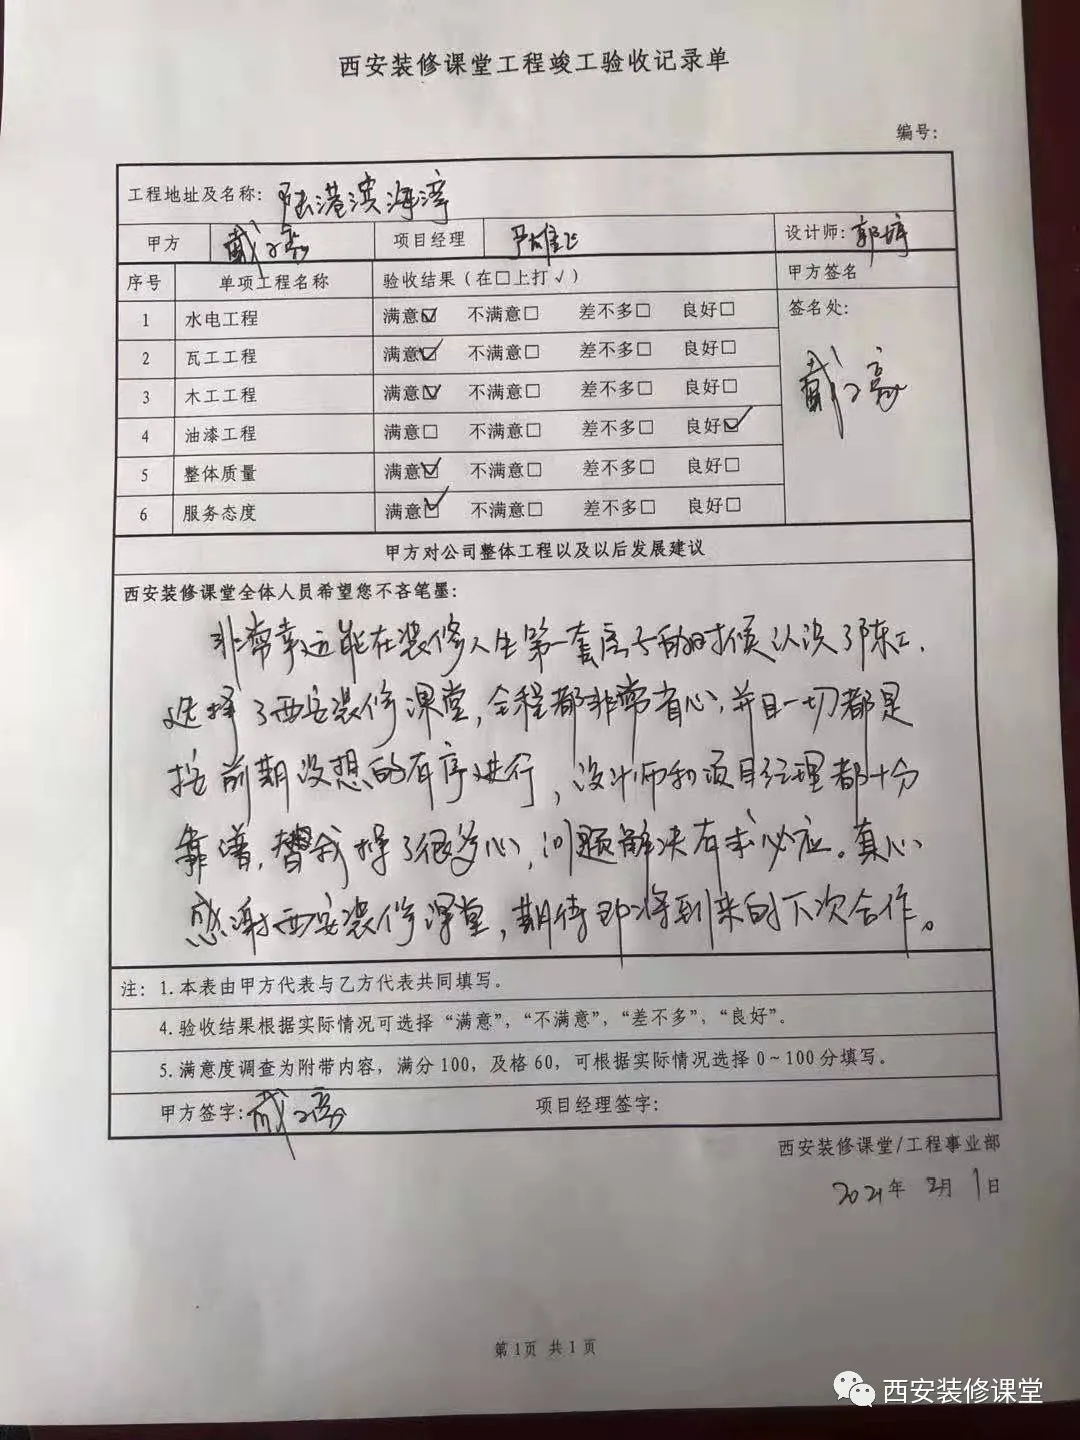 西安装修课堂工程竣工验收记录单
编号：
工程地址及名称：陆港滨海湾
甲方 戴 项目经理 严雄飞 设计师：郭婷
序号 单项工程名称 验收结果（在□上打√） 甲方签名
1 水电工程 满意☑ 不满意□ 差不多□ 良好□ 签名处：
2 瓦工工程 满意☑ 不满意□ 差不多□ 良好□
3 木工工程 满意☑ 不满意□ 差不多□ 良好□
戴
4 油漆工程 满意□ 不满意□ 差不多□ 良好☑
5 整体质量 满意☑ 不满意□ 差不多□ 良好□
6 服务态度 满意☑ 不满意□ 差不多□ 良好□
甲方对公司整体工程以及以后发展建议
西安装修课堂全体人员希望您不吝笔墨：
非常幸运能在装修人生第一套房子的时候认识了陈工，
选择了西安装修课堂，全程都非常省心，并且一切都是
按前期设想的有序进行，设计师和项目经理都十分
靠谱，替我操了很多心，问题解决有求必应。真心
感谢西安装修课堂，期待即将到来的下次合作。
注：1.本表由甲方代表与乙方代表共同填写。
4.验收结果根据实际情况可选择“满意”，“不满意”，“差不多”，“良好”。
5.满意度调查为附带内容，满分100，及格60，可根据实际情况选择0~100分填写。
甲方签字：戴 项目经理签字：
西安装修课堂/工程事业部
2021年 2月 1日
第1页 共1页
西安装修课堂